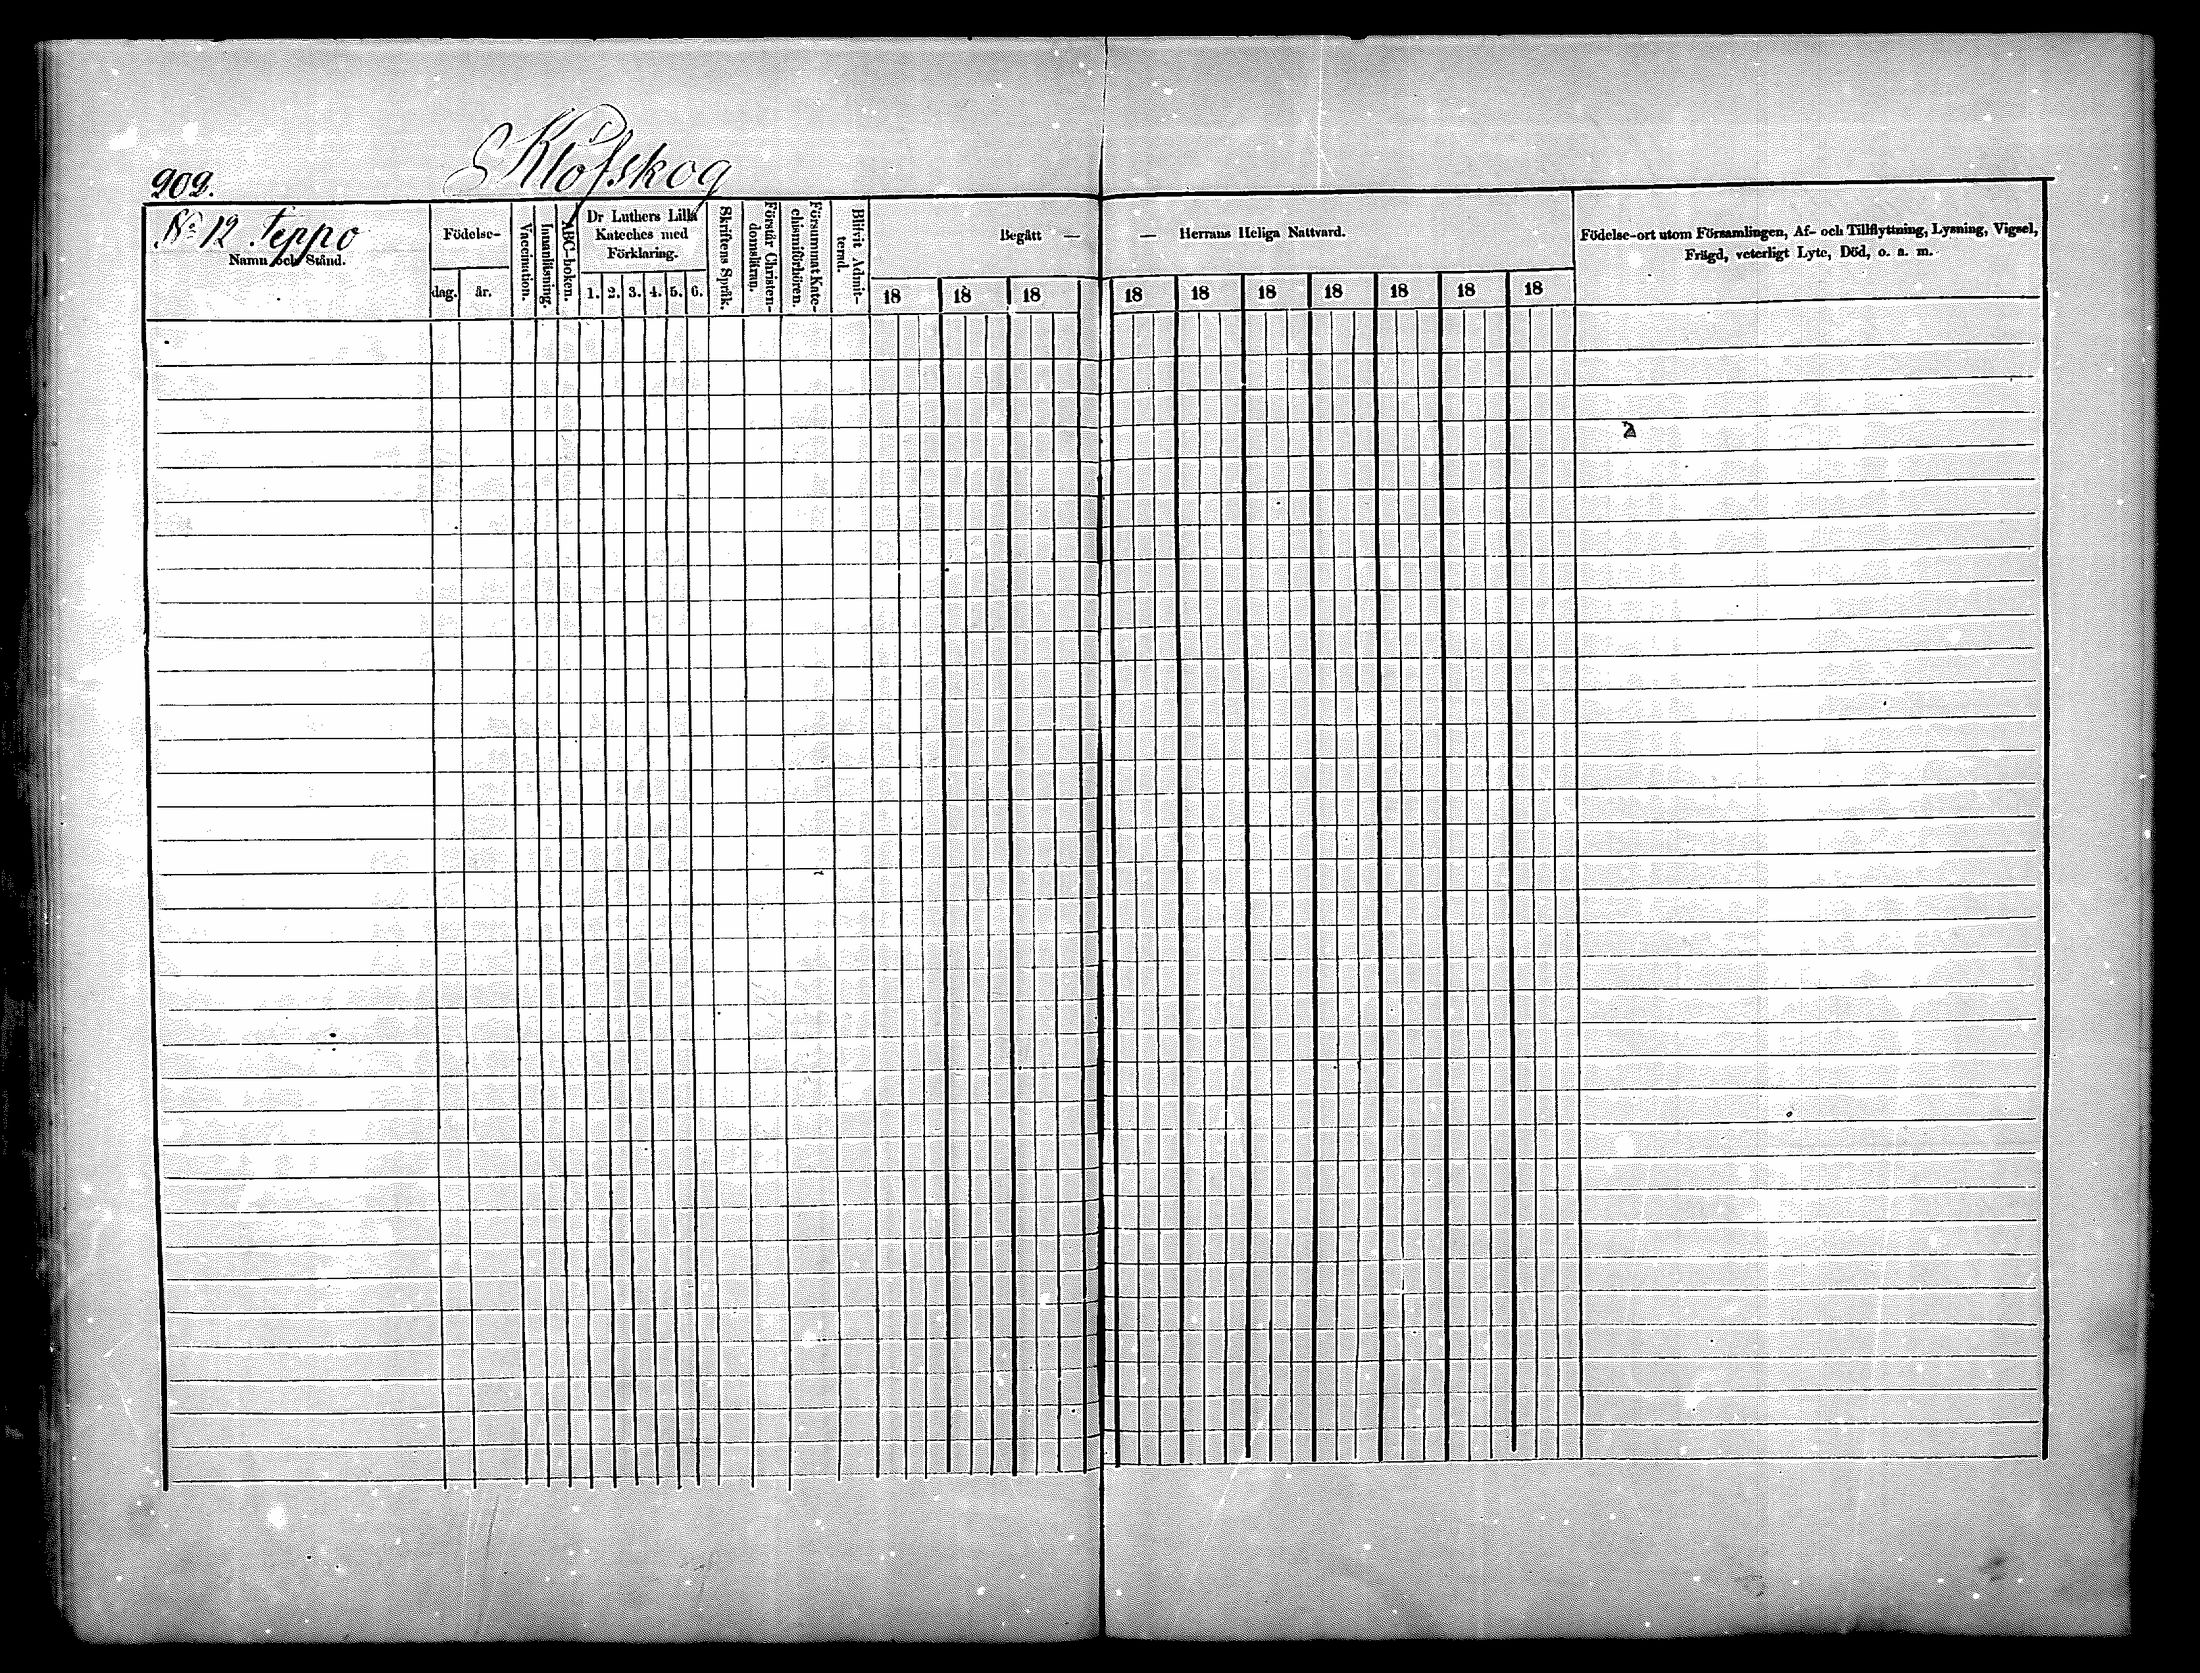 902.
Klöfskog
No 12 Seppo
Namn och Stånd.
Födelse-
dag.
år.
Vaccination.
Innanläsning.
ABC-boken.
Dr Luthers Lilla
Kateches med
Förklaring.
1. 2. 3. 4. 5. 6.
Skriftens Språk.
Förstår Christen-
domsläran.
Försummat Kate-
chismiförhören.
Blifvit Admit-
terad.
Begått — — Herrans Heliga Nattvard.
18 18 18 18 18 18 18 18 18 18
Födelse-ort utom Församlingen, Af- och Tillflyttning, Lysning, Vigsel,
Frägd, veterligt Lyte, Död, o. a. m.